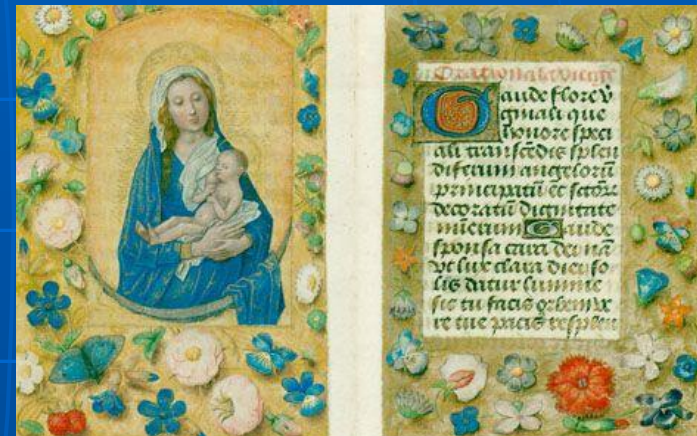 Gaude flore v̄
ginali que
honore speci
ali transcēdis splen
diferum angelorū
principatū et sctōrꝫ
decoratū dignitate
Gaude
sponsa cara dei nā
vt lux clara diei so
lis datur lumine
sic tu facis orbem ve
re tue pacis resplen